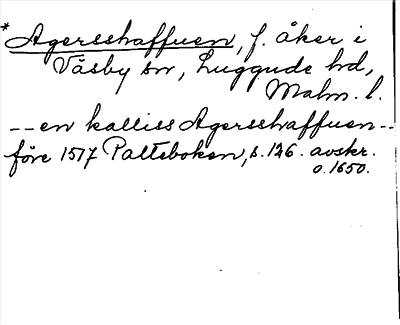 * Agersshaffuen, f. åker i
Väsby sn, Luggude hd,
Malm. l.
-- en kalliss Agersshaffuen --
före 1517 Palteboken, s. 126. avskr.
o. 1650.